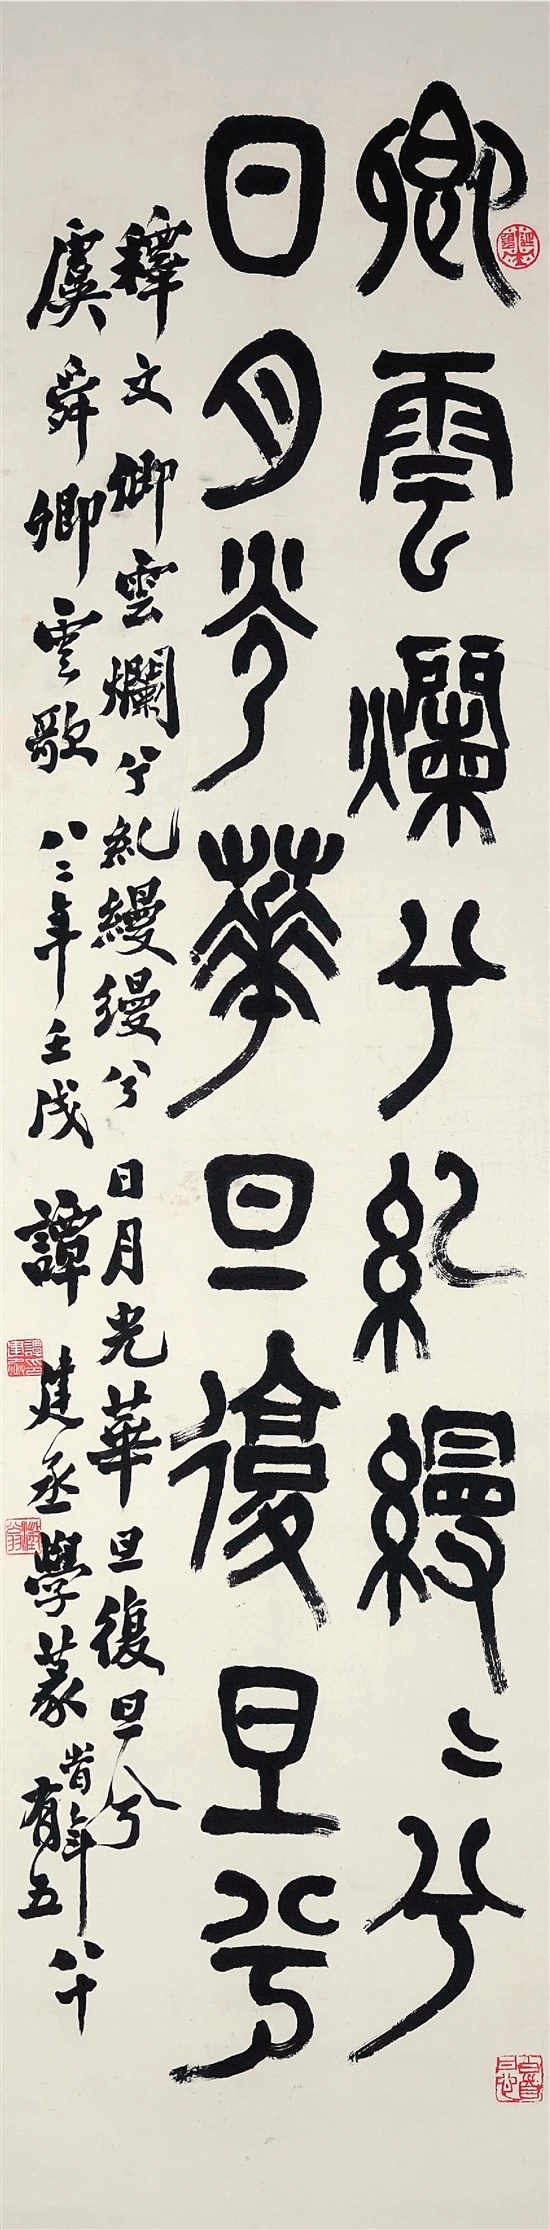 卿雲爛兮糺縵〻兮
日月光華旦復旦兮
釋文卿雲爛兮糺縵縵兮日月光華旦復旦兮
虞舜卿雲歌 八二年壬戌 譚建丞學篆 旹年八十
有五